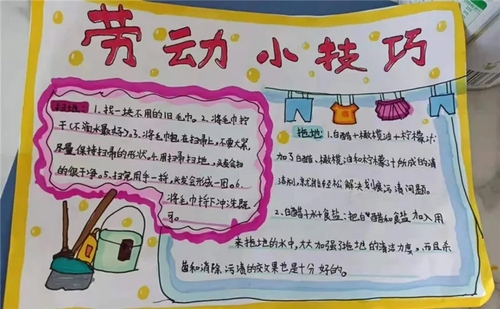 劳动小技巧
扫地:1、找一块不用的旧毛巾。2、将毛巾拧
干(不滴水最好)。3、将毛巾包在扫帚上,不要太紧,
尽量保持扫帚的形状,4.用扫帚扫地,头发会扫
的很干净。5.扫完用手一捋,头发会形成一团。6.
将毛巾拆下冲洗既
可。
拖地:1.白醋+橄榄油+柠檬汁
加了白醋、橄榄油和柠檬汁所成的清
洁剂,就能轻松解决划痕污渍问题。
2、白醋+水+食盐:把白醋和食盐加入用
来拖地的水中,大大加强拖地的清洁力度,而且杀
菌和消除污渍的效果也是十分好的。